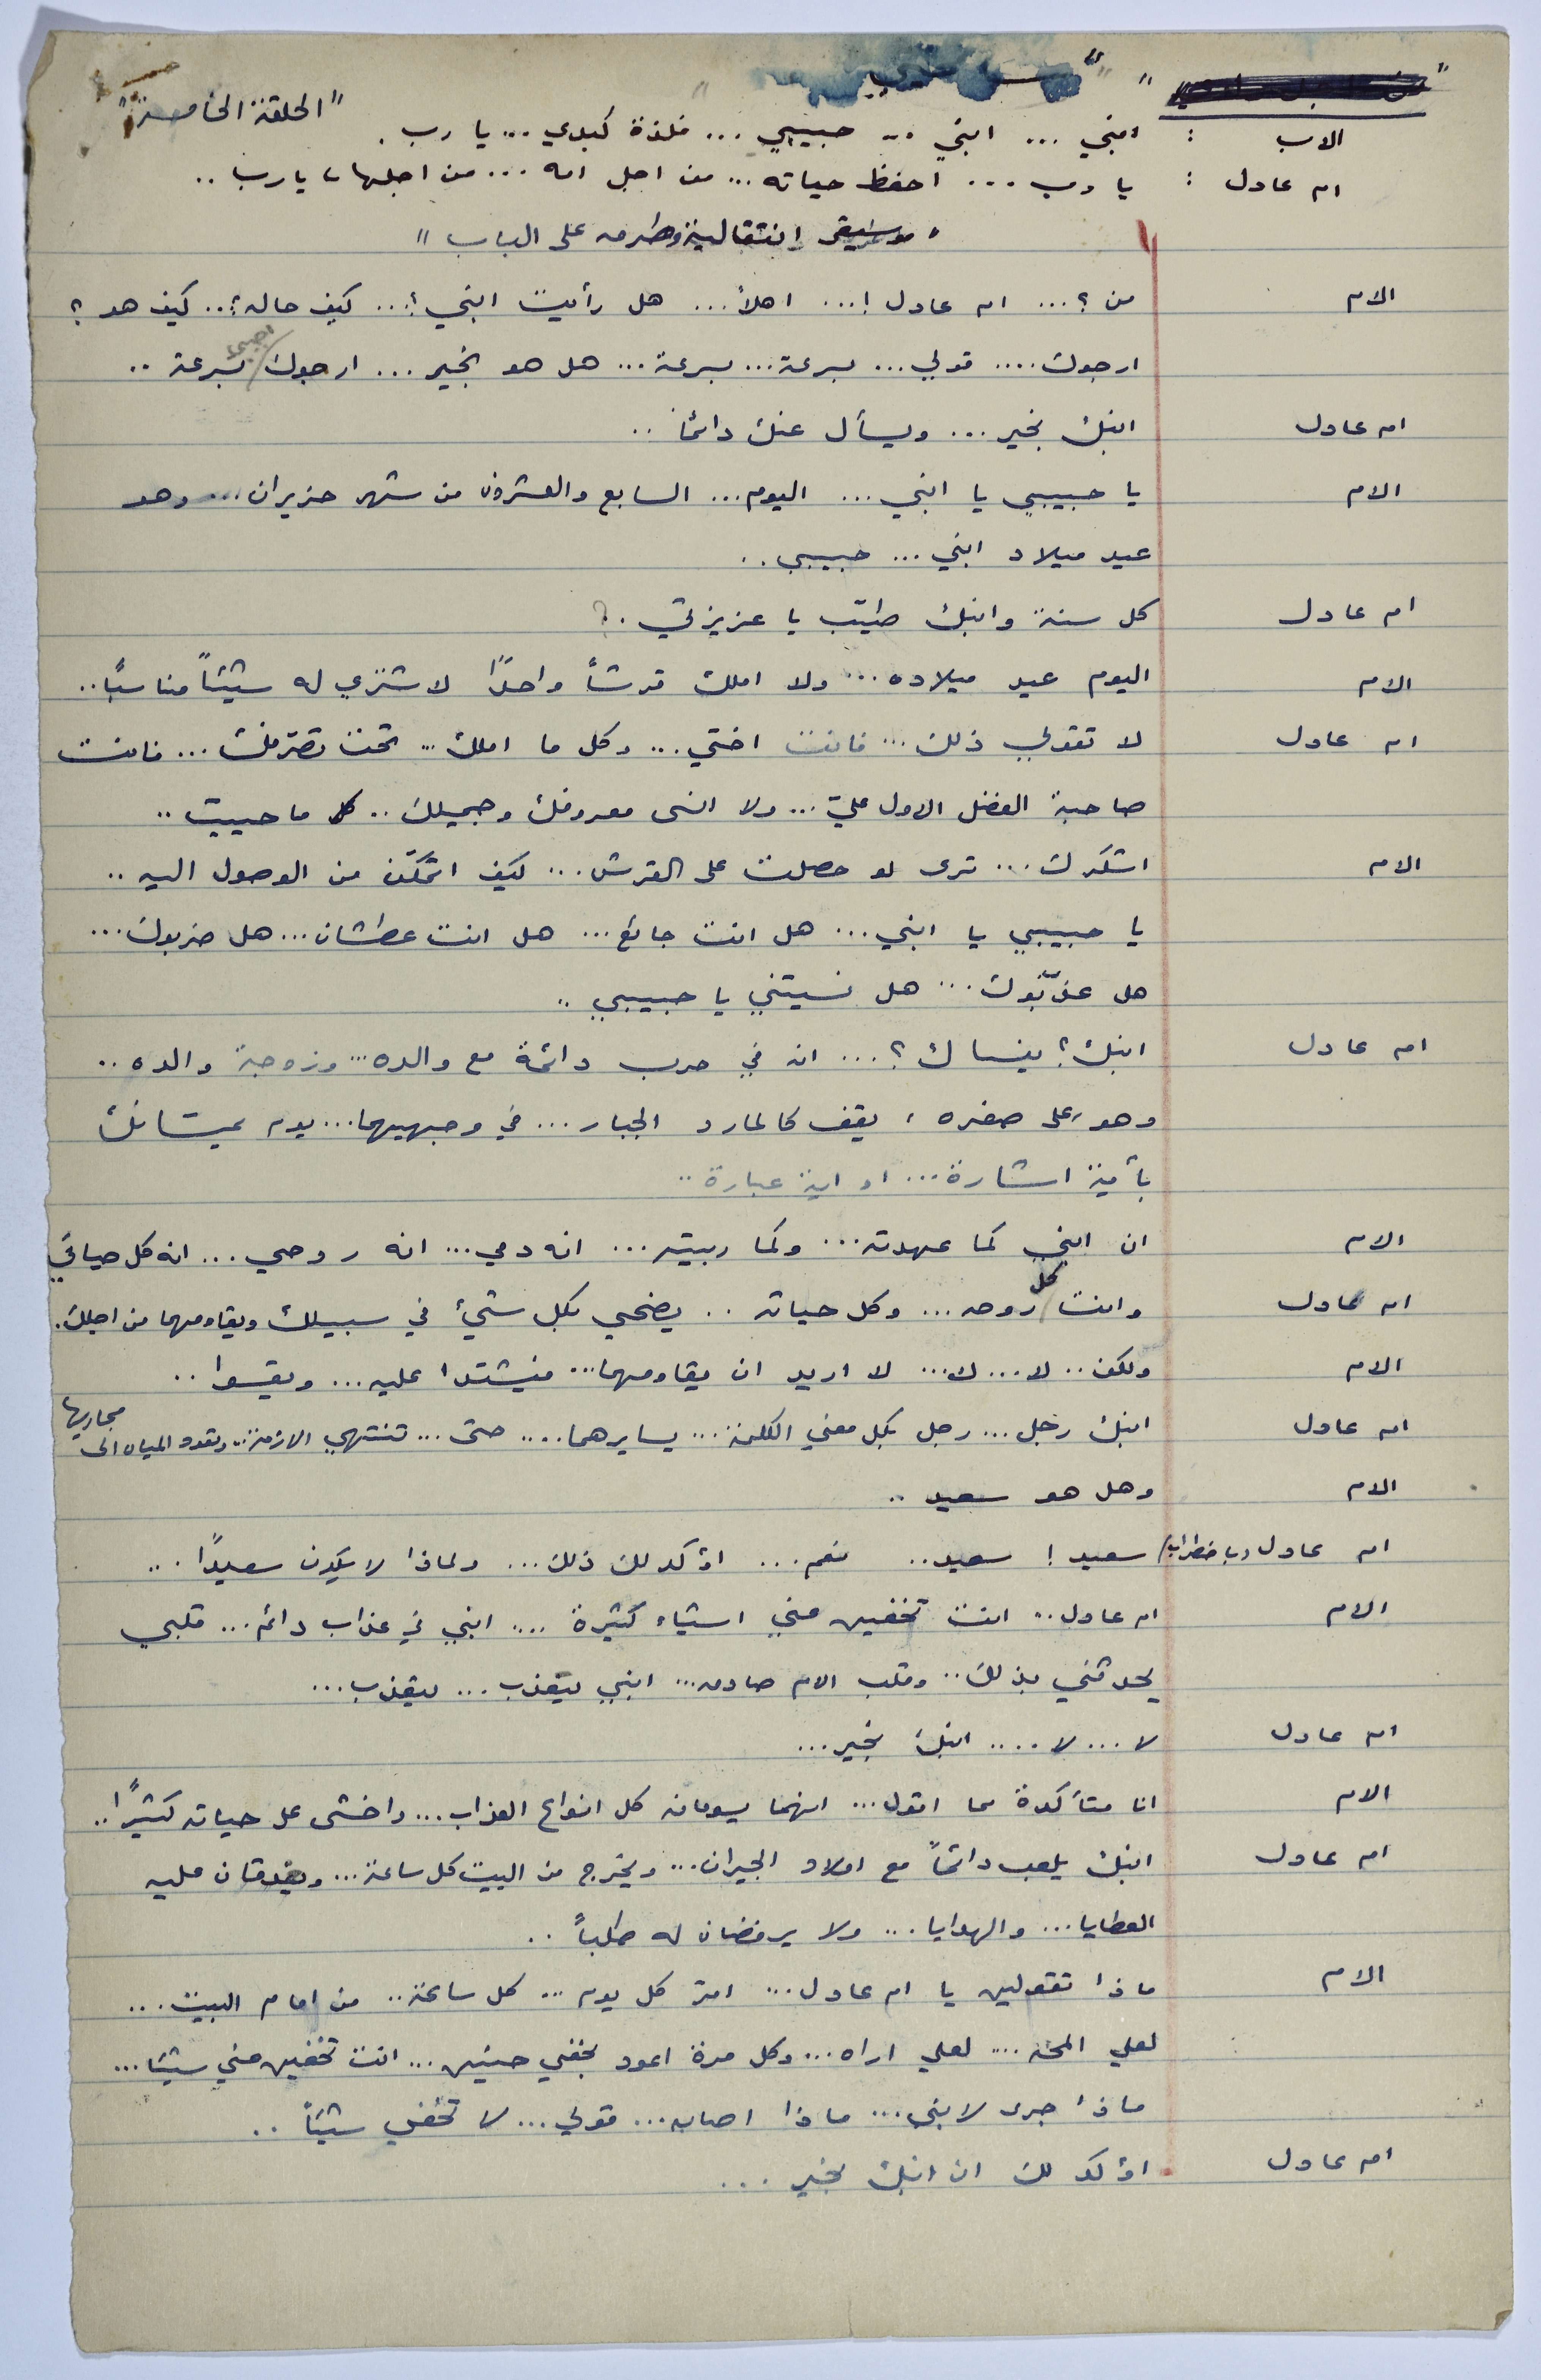 "الحلقة الخامسة"
الاب : ابني ... ابني .. حبيبي ... فلذة كبدي ... يا رب .
ام عادل : يا رب ... احفظ حياته ... من اجل امه ... من اجلها، يا رب ..
"موسيقى انتقالية وطرق على الباب"
الام من ؟ ... ام عادل ! ... اهلاً ... هل رأيت ابني ؟ ... كيف حاله ؟ .. كيف هو ؟
ارجوك .... قولي ... بسرعة ... بسرعة ... هل هو بخير ... ارجوك / اجيبي بسرعة ..
ام عادل ابنك بخير ... ويسأل عنك دائماً ..
الام يا حبيبي يا ابني ... اليوم ... السابع والعشرون من شهر حزيران ... وهو
عيد ميلاد ابني ... حبيبي ..
ام عادل كل سنة وابنك طيّب يا عزيزتي . ?
الام اليوم عيد ميلاده ... ولا املك قرشاً واحدًا لاشتري له شيئاً مناسبًا ..
ام عادل لا تقولي ذلك ... فانت اختي ... وكل ما املك ... تحت تصرّفك ... فانت
صاحبة الفضل الاول عليّ ... ولا انسى معروفك وجميلك .. ما حييت ..
الام اشكرك ... ترى لو حصلت على القرش ... كيف اتمكّن من الوصول اليه ..
يا حبيبي يا ابني ... هل انت جائع ... هل انت عطشان ... هل ضربوك ...
هل عذّبوك ... هل نسيتني يا حبيبي ..
ام عادل ابنك ؟ ينساك ؟ ... انه في حرب دائمة مع والده ... وزوجة والده ..
وهو، على صغره ، يقف كالمارد الجبار ... في وجهيهما ... يوم يمسّانك
بأية اشارة ... او اية عبارة ..
الام ان ابني كما عهدته ... وكما ربيته ... انه دمي ... انه روحي ... انه كل حياتي
ام عادل وانت / كل روحه ... وكل حياته .. يضحي بكل شيئ في سبيلك ويقاومهما من اجلك .
الام ولكن .. لا ... لا ... لا اريد ان يقاومهما ... فيشتدا عليه ... ويقسوا ..
ام عادل ابنك رجل ... رجل بكل معنى الكلمة ... يسايرهما .... حتى ... تنتهي الازمة .. وتعود المياه الى مجاريها
الام وهل هو سعيد ..
ام عادل (باضطراب) سعيد ! سعيد .. نعم ... اؤكد لك ذلك ... ولماذا لا يكون سعيدًا ...
الام ام عادل .. انت تخفين عني اشياء كثيرة .... ابني في عذاب دائم ... قلبي
يحدثني بذلك .. وقلب الام صادق ... ابني يتعذب ... يتعذب ...
ام عادل لا ... لا .... ابنك بخير ...
الام انا متأكدة مما اقول ... انهما يسومانه كل انواع العذاب ... واخشى على حياته كثيرًا ..
ام عادل ابنك يلعب دائماً مع اولاد الجيران ... ويخرج من البيت كل ساعة ... ويغدقان عليه
العطايا ... والهدايا ... ولا يرفضان له طلباً ..
الام ماذا تقولين يا ام عادل ... امرّ كل يوم ... كل ساعة .. من امام البيت ...
لعلي المحه ... لعلي اراه ... وكل مرة اعود بخفي حنين ... انت تخفين عني شيئا ...
ماذا جرى لابني ... ماذا اصابه ... قولي ... لا تخفي شيئاً ..
ام عادل اؤكد لك ان ابنك بخير ...